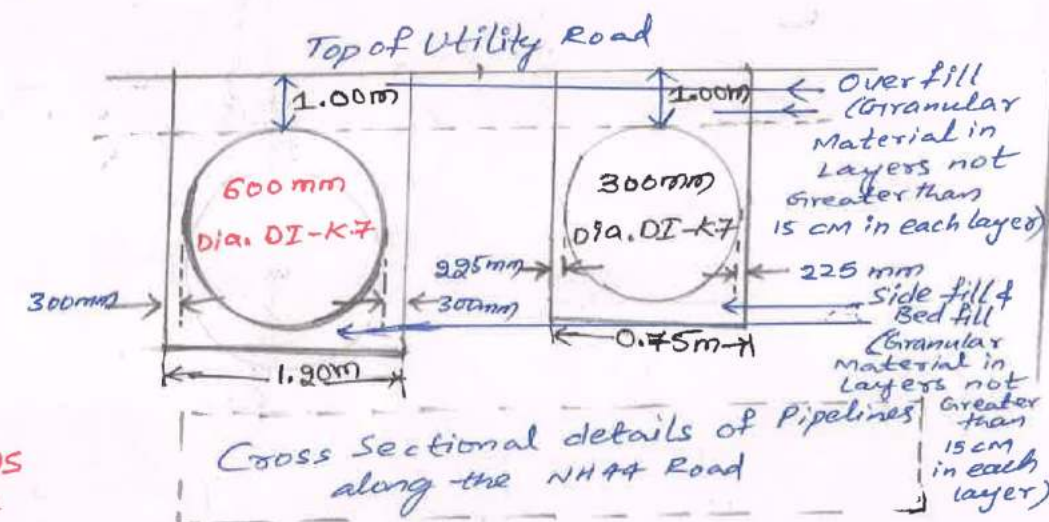 Top of Utility Road
1.00m
1.00m
Over fill
(Granular
Material in
Layers not
Greater than
15 cm in each layer)
600mm
Dia. DI-K7
300mm
Dia. DI-K7
300mm
300mm
225mm
225 mm
Side fill &
Bed fill
(Granular
material in
Layers not
Greater
than
15 cm
in each
layer)
1.20m
0.75m
Cross Sectional details of Pipelines
along the NH44 Road